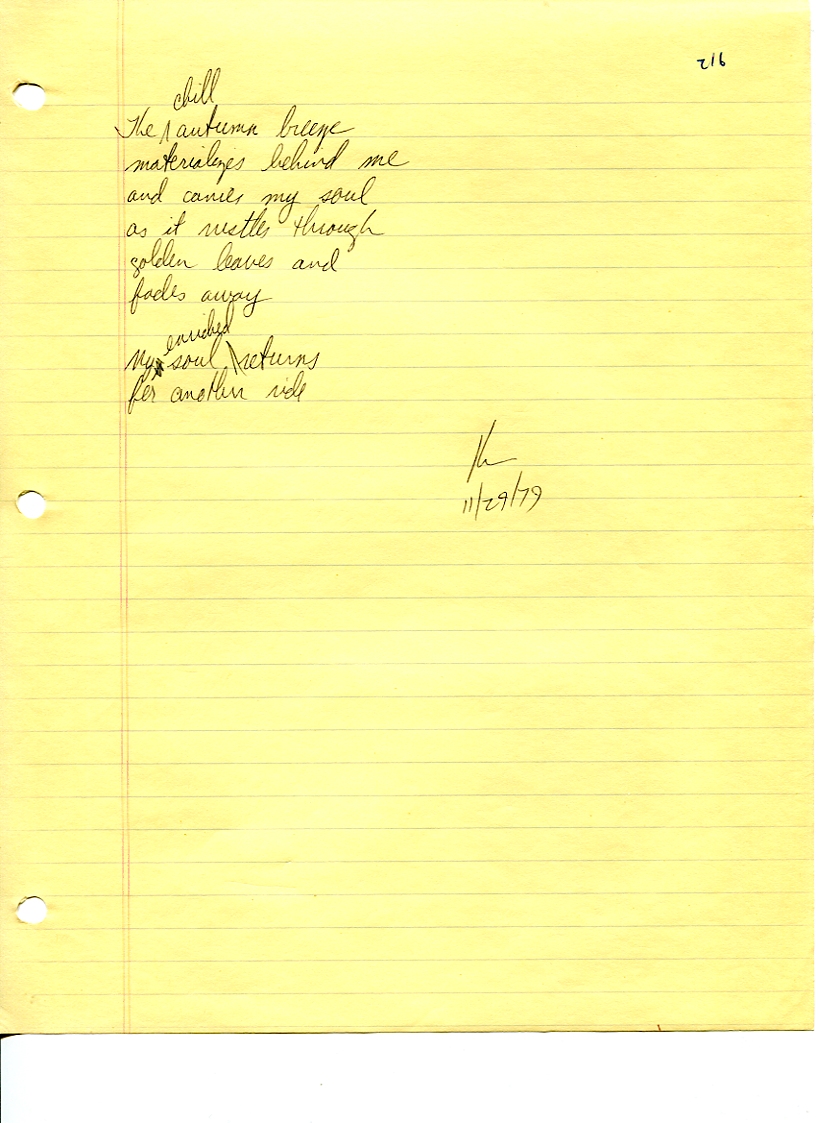 216
chill
The autumn breeze
materializes behind me
and carries my soul
as it rustles through
golden leaves and
fades away
enriched
My soul returns
for another ride
11/29/79